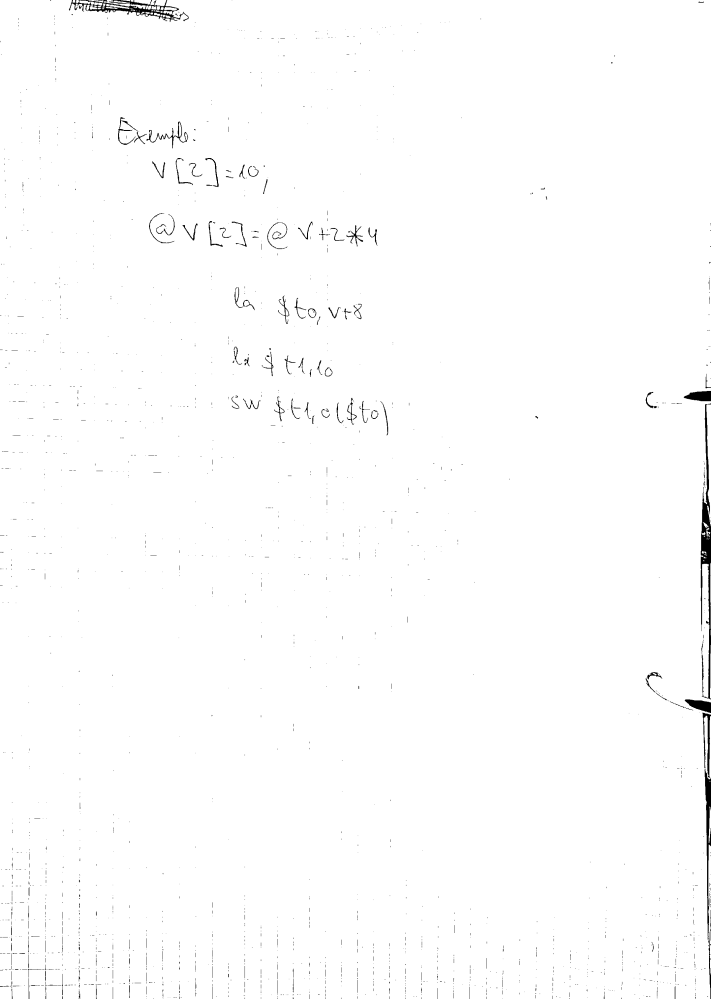 Exemple:
V[2]=10;
@V[2]=@V+2*4
la $t0, V+8
li $t1, 10
sw $t1, 0($t0)